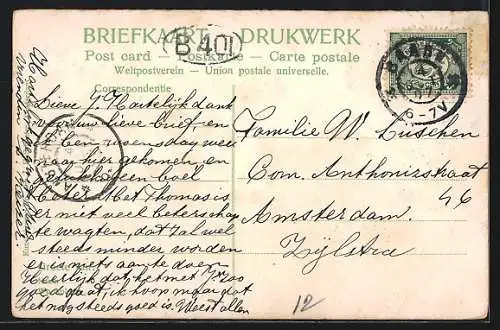 BRIEFKAART. DRUKWERK
B 401
Post card — Postkarte — Carte postale
Weltpostverein — Union postale universelle.
Correspondentie
Lieve J. Hartelijk dank
voor uw lieve brief, en
ik ben woensdag weer
naar hier gekomen, en
boel
beter. Met Thomas is
er niet veel beterschap
te wagten, dat zal wel
steeds minder worden
er is niets aan te doen
Heerlijk dat het met zoo
goed gaat, ik hoop maar dat
het nog steeds goed is, Weest allen
Familie W. Luschen
Com. Anthoniszstraat
46
Amsterdam.
Zijlstra
BAARN
6-7V
12